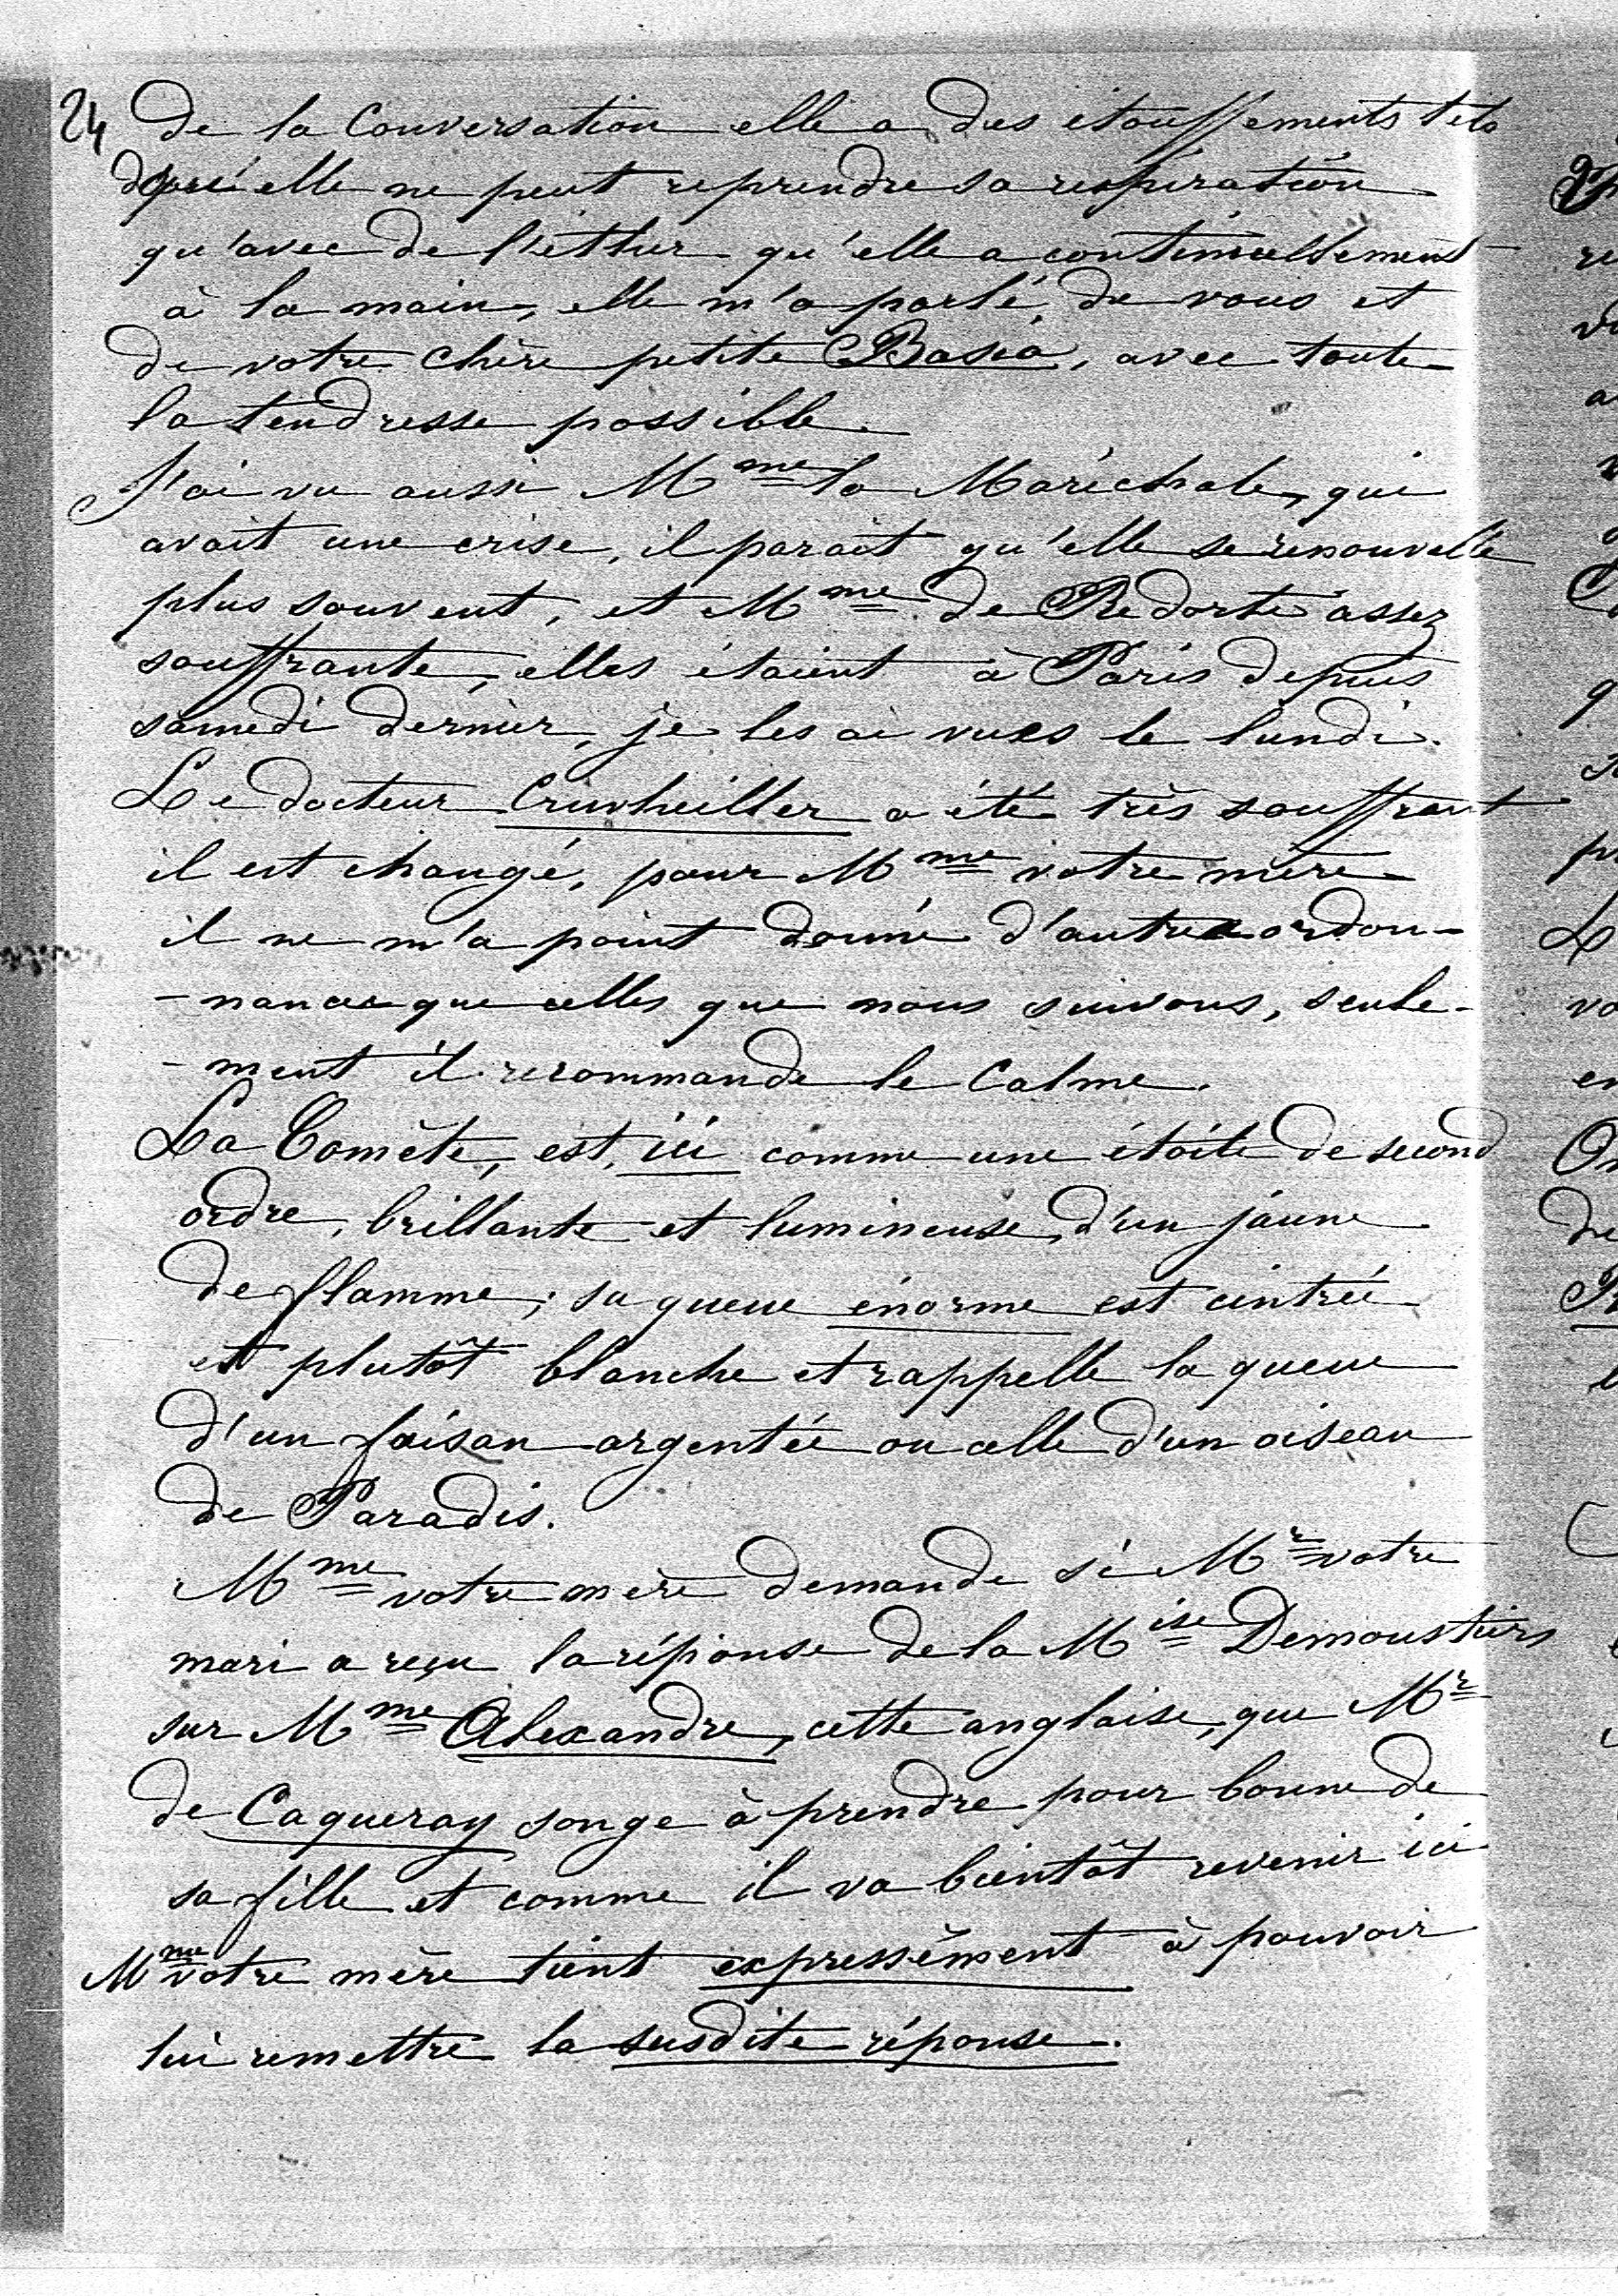 24
de la Conversation elle a des étouffements tels
qu'elle ne peut reprendre sa respiration
qu'avec de l'éther qu'elle a continuellement
à la main, elle m'a parlé, de vous et
de votre chère petite Basia, avec toute
la tendresse possible.
J'ai vu aussi Mme la Maréchale, qui
avait une crise, il parait qu'elle se renouvelle
plus souvent, et Mme de Redorte assez
souffrante, elles étaient à Paris depuis
samedi dernier, je les ai vues le lundi.
Le docteur Cruvheiller a été très souffrant
il est changé, pour Mme votre mère
il ne m'a point donné d'autres ordon-
-nances que celles que nous suivons, seule-
-ment il recommande le Calme.
La Comète, est, ici comme une étoile de second
ordre, brillante et lumineuse, d'un jaune
de flamme; sa queue énorme est cintrée
et plutôt blanche et rappelle la queue
d'un faisan argentée ou celle d'un oiseau
de Paradis.
Mme votre mère demande si Mr votre
mari a reçu la réponse de la Mise Demoustiers
sur Mme Alexandre, cette anglaise, que Mr
de Caqueray songe à prendre pour bonne de
sa fille et comme il va bientôt revenir ici
Mme votre mère tient expressément à pouvoir
lui remettre la susdite réponse.